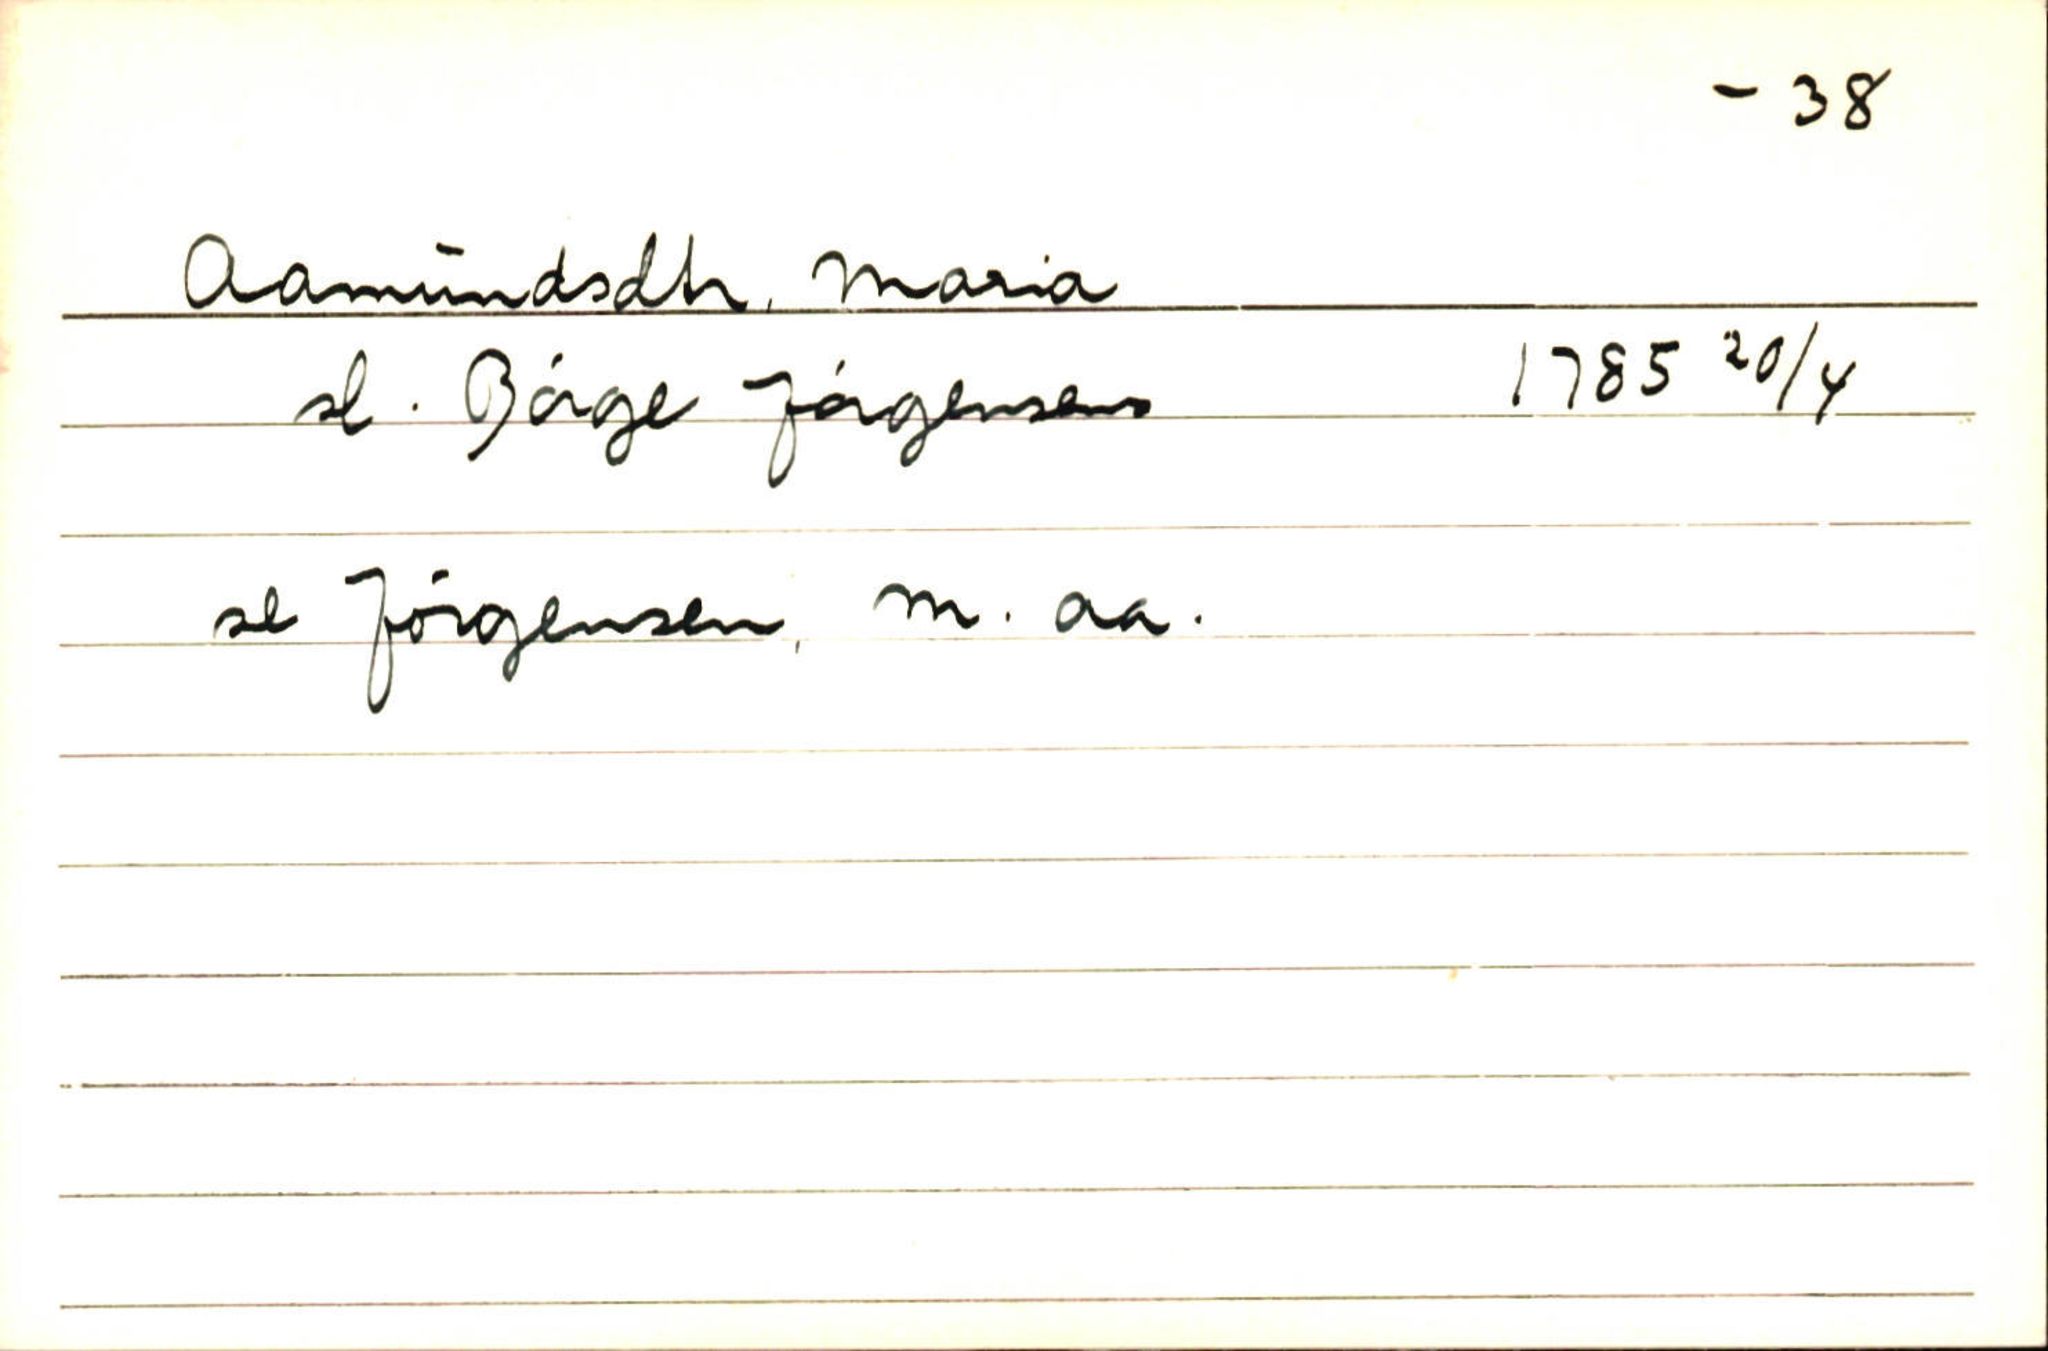 - 38
Aamundsdtr, Maria
sl. Börge Jörgensens 1785 20/4
se Jörgensen, M. Aa.